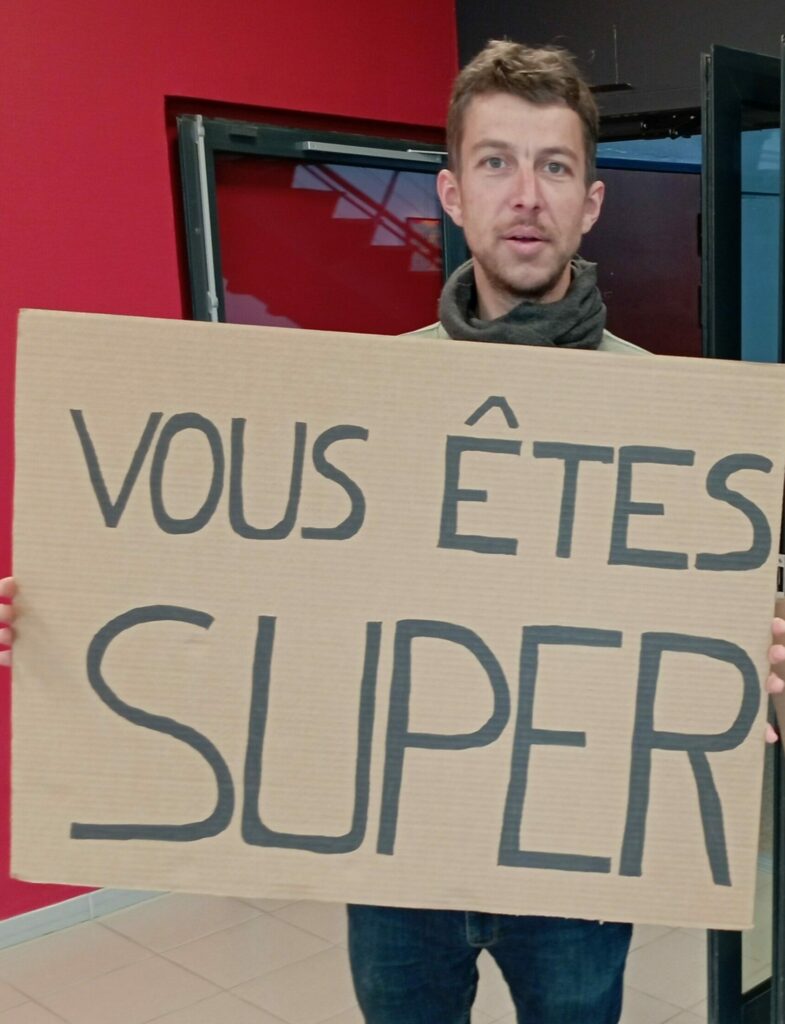 VOUS ÊTES
SUPER